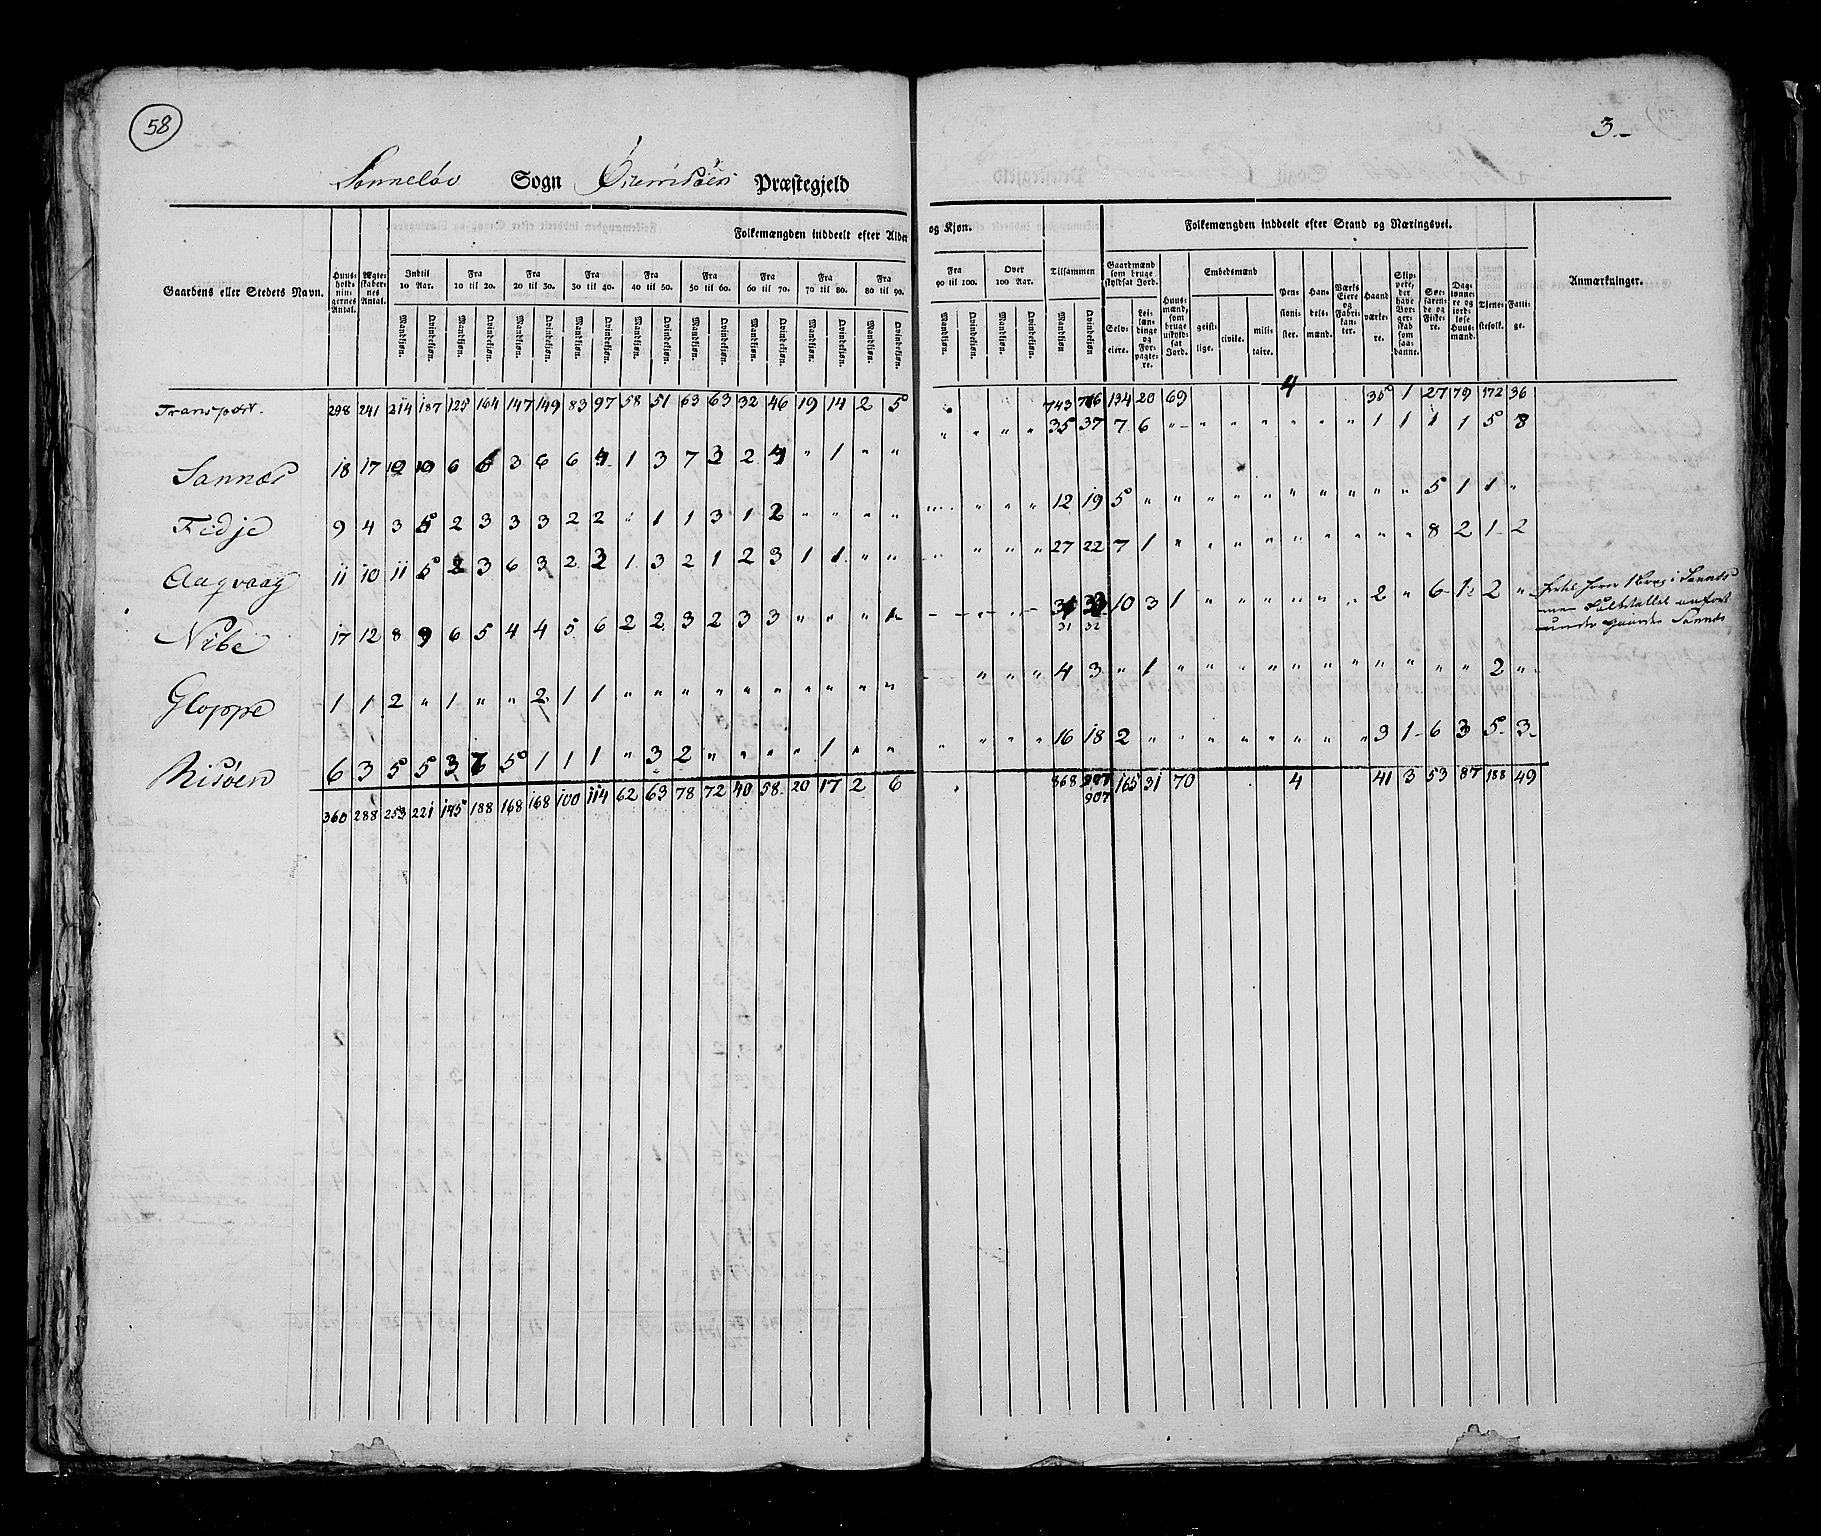 58
3.-
Sanneløv Sogn Præstegjeld
Folkemængden inddeelt efter Alder og Kjøn. Folkemængden inddeelt efter Stand og Næringsvei.
Gaardens eller Stedets Navn. Huusholdningernes Antal. Ægteskabernes Antal. Indtil 10 Aar. Fra 10 til 20. Fra 20 til 30. Fra 30 til 40. Fra 40 til 50. Fra 50 til 60. Fra 60 til 70. Fra 70 til 80. Fra 80 til 90. Fra 90 til 100. Over 100 Aar. Tilsammen Gaardmænd som bruge skyldsat Jord. Huusmænd, som bruge uskyldsat Jord. Embedsmænd Pensionister. Handelsmænd. Værks Eiere og Fabrikanter. Haandværkere. Skippere, der have Borgerskab som saadanne. Søefarende og Fiskere. Dagløннere og jordløse Huusmænd. Tjenestefolk. Fattige. Anmærkninger.
Mandkjøn. Qvindekjøn. Mandkjøn. Qvindekjøn. Mandkjøn. Qvindekjøn. Mandkjøn. Qvindekjøn. Mandkjøn. Qvindekjøn. Mandkjøn. Qvindekjøn. Mandkjøn. Qvindekjøn. Mandkjøn. Qvindekjøn. Mandkjøn. Qvindekjøn. Mandkjøn. Qvindekjøn. Mandkjøn. Qvindekjøn. Mandkjøn Qvindekjøn. Selveiere. Leilændinge og Forpagtere. geistlige. civile. militaire.
Transport. 298 241 214 187 125 164 147 149 83 97 58 51 63 63 32 46 19 14 2 5 743 134 20 69 4 35 1 27 79 172 36
Sannæs 18 17 10 6 6 3 6 6 4 1 3 7 3 2 4 " 1 " " " " " " 35 37 7 6 " " " " " " " " 1 1 1 1 5 8
Fedje 9 4 3 5 2 3 3 3 2 2 " 1 1 3 1 2 " " " " " " " " 12 19 5 " " " " " " " " " " " 5 1 1 "
Aaqvaag 11 10 11 5 2 3 6 3 2 2 1 3 2 1 2 3 1 1 " " " " " " 27 22 7 1 " " " " " " " " " " 8 2 1 2
Nibe 17 12 8 9 6 5 4 4 5 6 2 2 3 2 3 3 " " " 1 10 3 1 " " " " " " " 2 " 6 12 2 "
31 32
Gloppe 1 1 2 " 1 " " 2 1 1 " " " " " " " " " " " " " 4 3 " 1 " " " " " " " " " " " " 2 "
Risøen 6 3 5 5 3 6 5 1 1 1 " 3 2 " " " " 1 " " " " " " 16 18 2 " " " " " " " " " 3 1 6 3 5 3
360 288 253 221 145 188 168 168 100 114 62 63 78 72 40 58 20 17 2 6 868 907 165 31 70 4 41 3 53 87 188 49